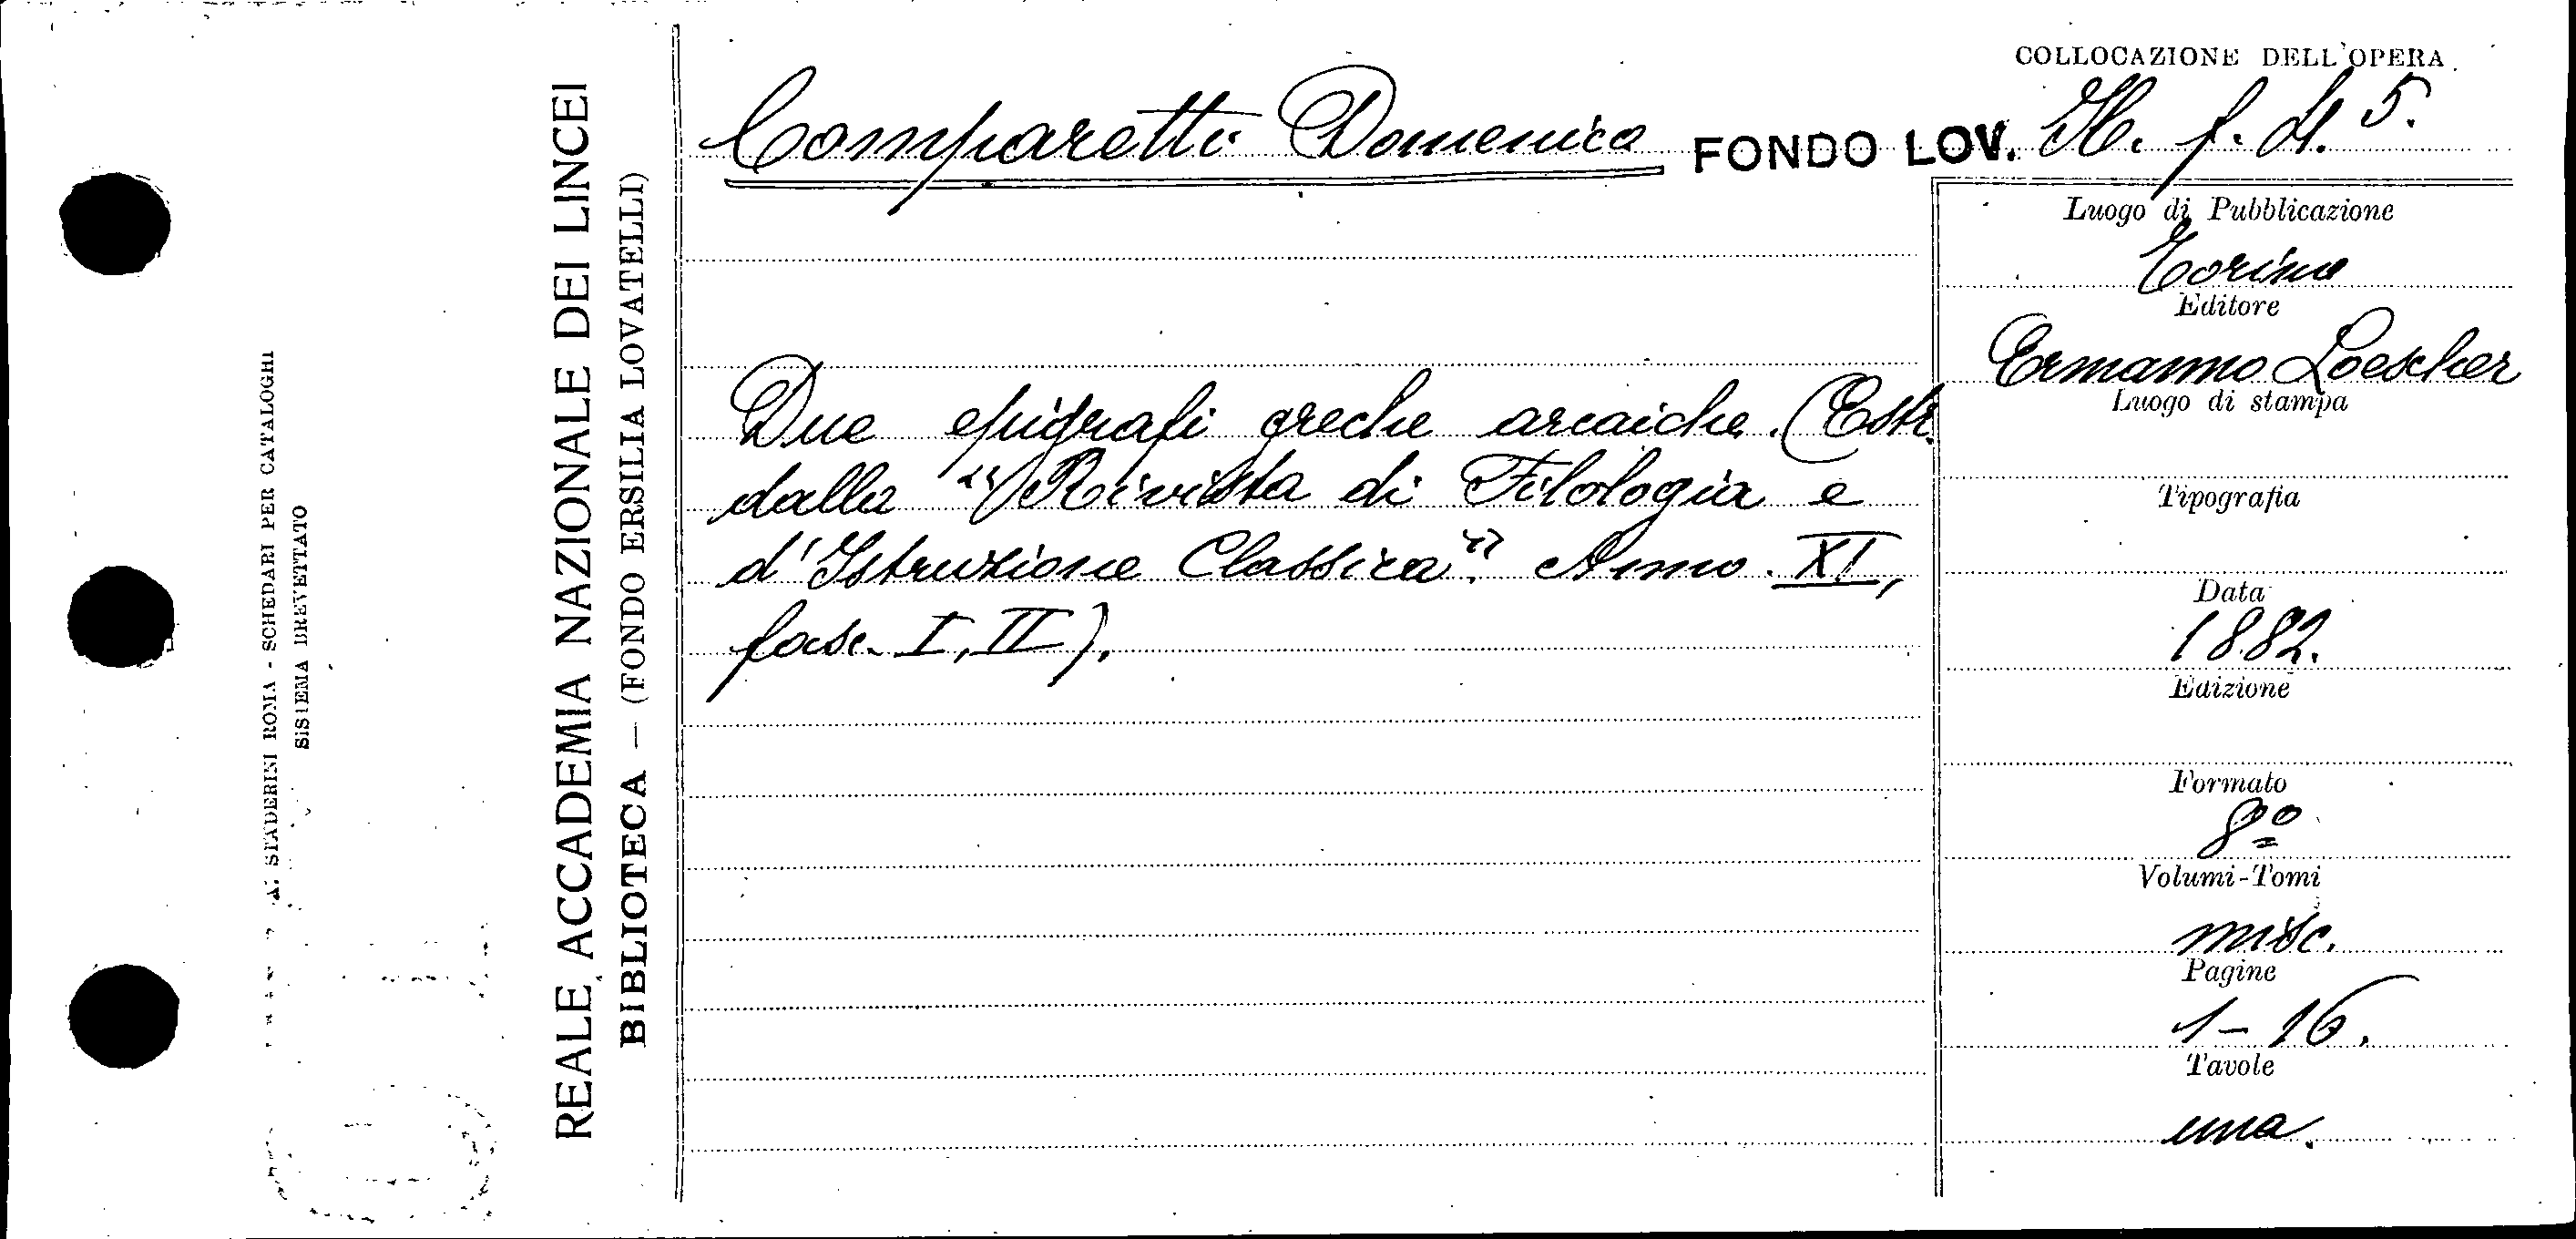 COLLOCAZIONE DELL'OPERA
Comparetti Domenico FONDO LOV. 5.
Due epigrafi greche arcaiche. (Estr.
dalla "Rivista di Filologia e
d'Istruzione Classica". Anno. XI,
fasc. I, II).
Luogo di Pubblicazione
Torino
Editore
Ermanno Loescher
Luogo di stampa
Tipografia
Data
1882.
Edizione
Formato
8º
Volumi-Tomi
misc.
Pagine
1-16.
Tavole
una.
REALE ACCADEMIA NAZIONALE DEI LINCEI
BIBLIOTECA — (FONDO ERSILIA LOVATELLI)
A. STADERINI ROMA - SCHEDARI PER CATALOGHI
SISTEMA BREVETTATO